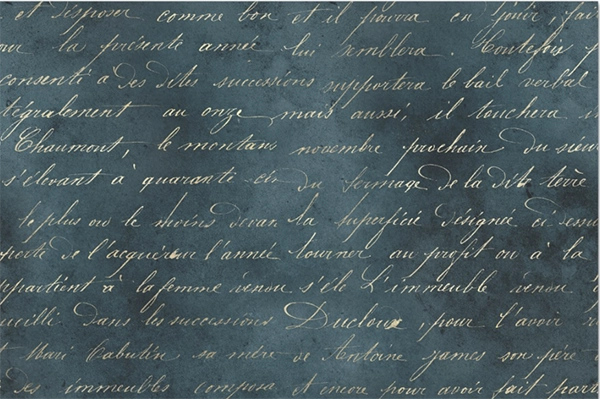 et disposer comme bon et il pourra en jouir, fai
la présente année lui semblera. Toutefois
consenti à des dites successions supportera le bail verbal
tégralement au onze mais aussi, il touchera
Chaumont, le montant novembre prochain du sieur
s'élevant à quarante cin du fermage de la dite terre
le plus ou le moins devan la superficie designée ci dessu
porte de l'acquéreur l'année tourner au profit ou à la
ppartient à la femme venou s'éle L'immeuble venou
ueilli dans les successions Ducloux, pour l'avoir
Mari Cabutin sa mère de Antoine james son père
des immeubles composa et encore pour avoir fait parti